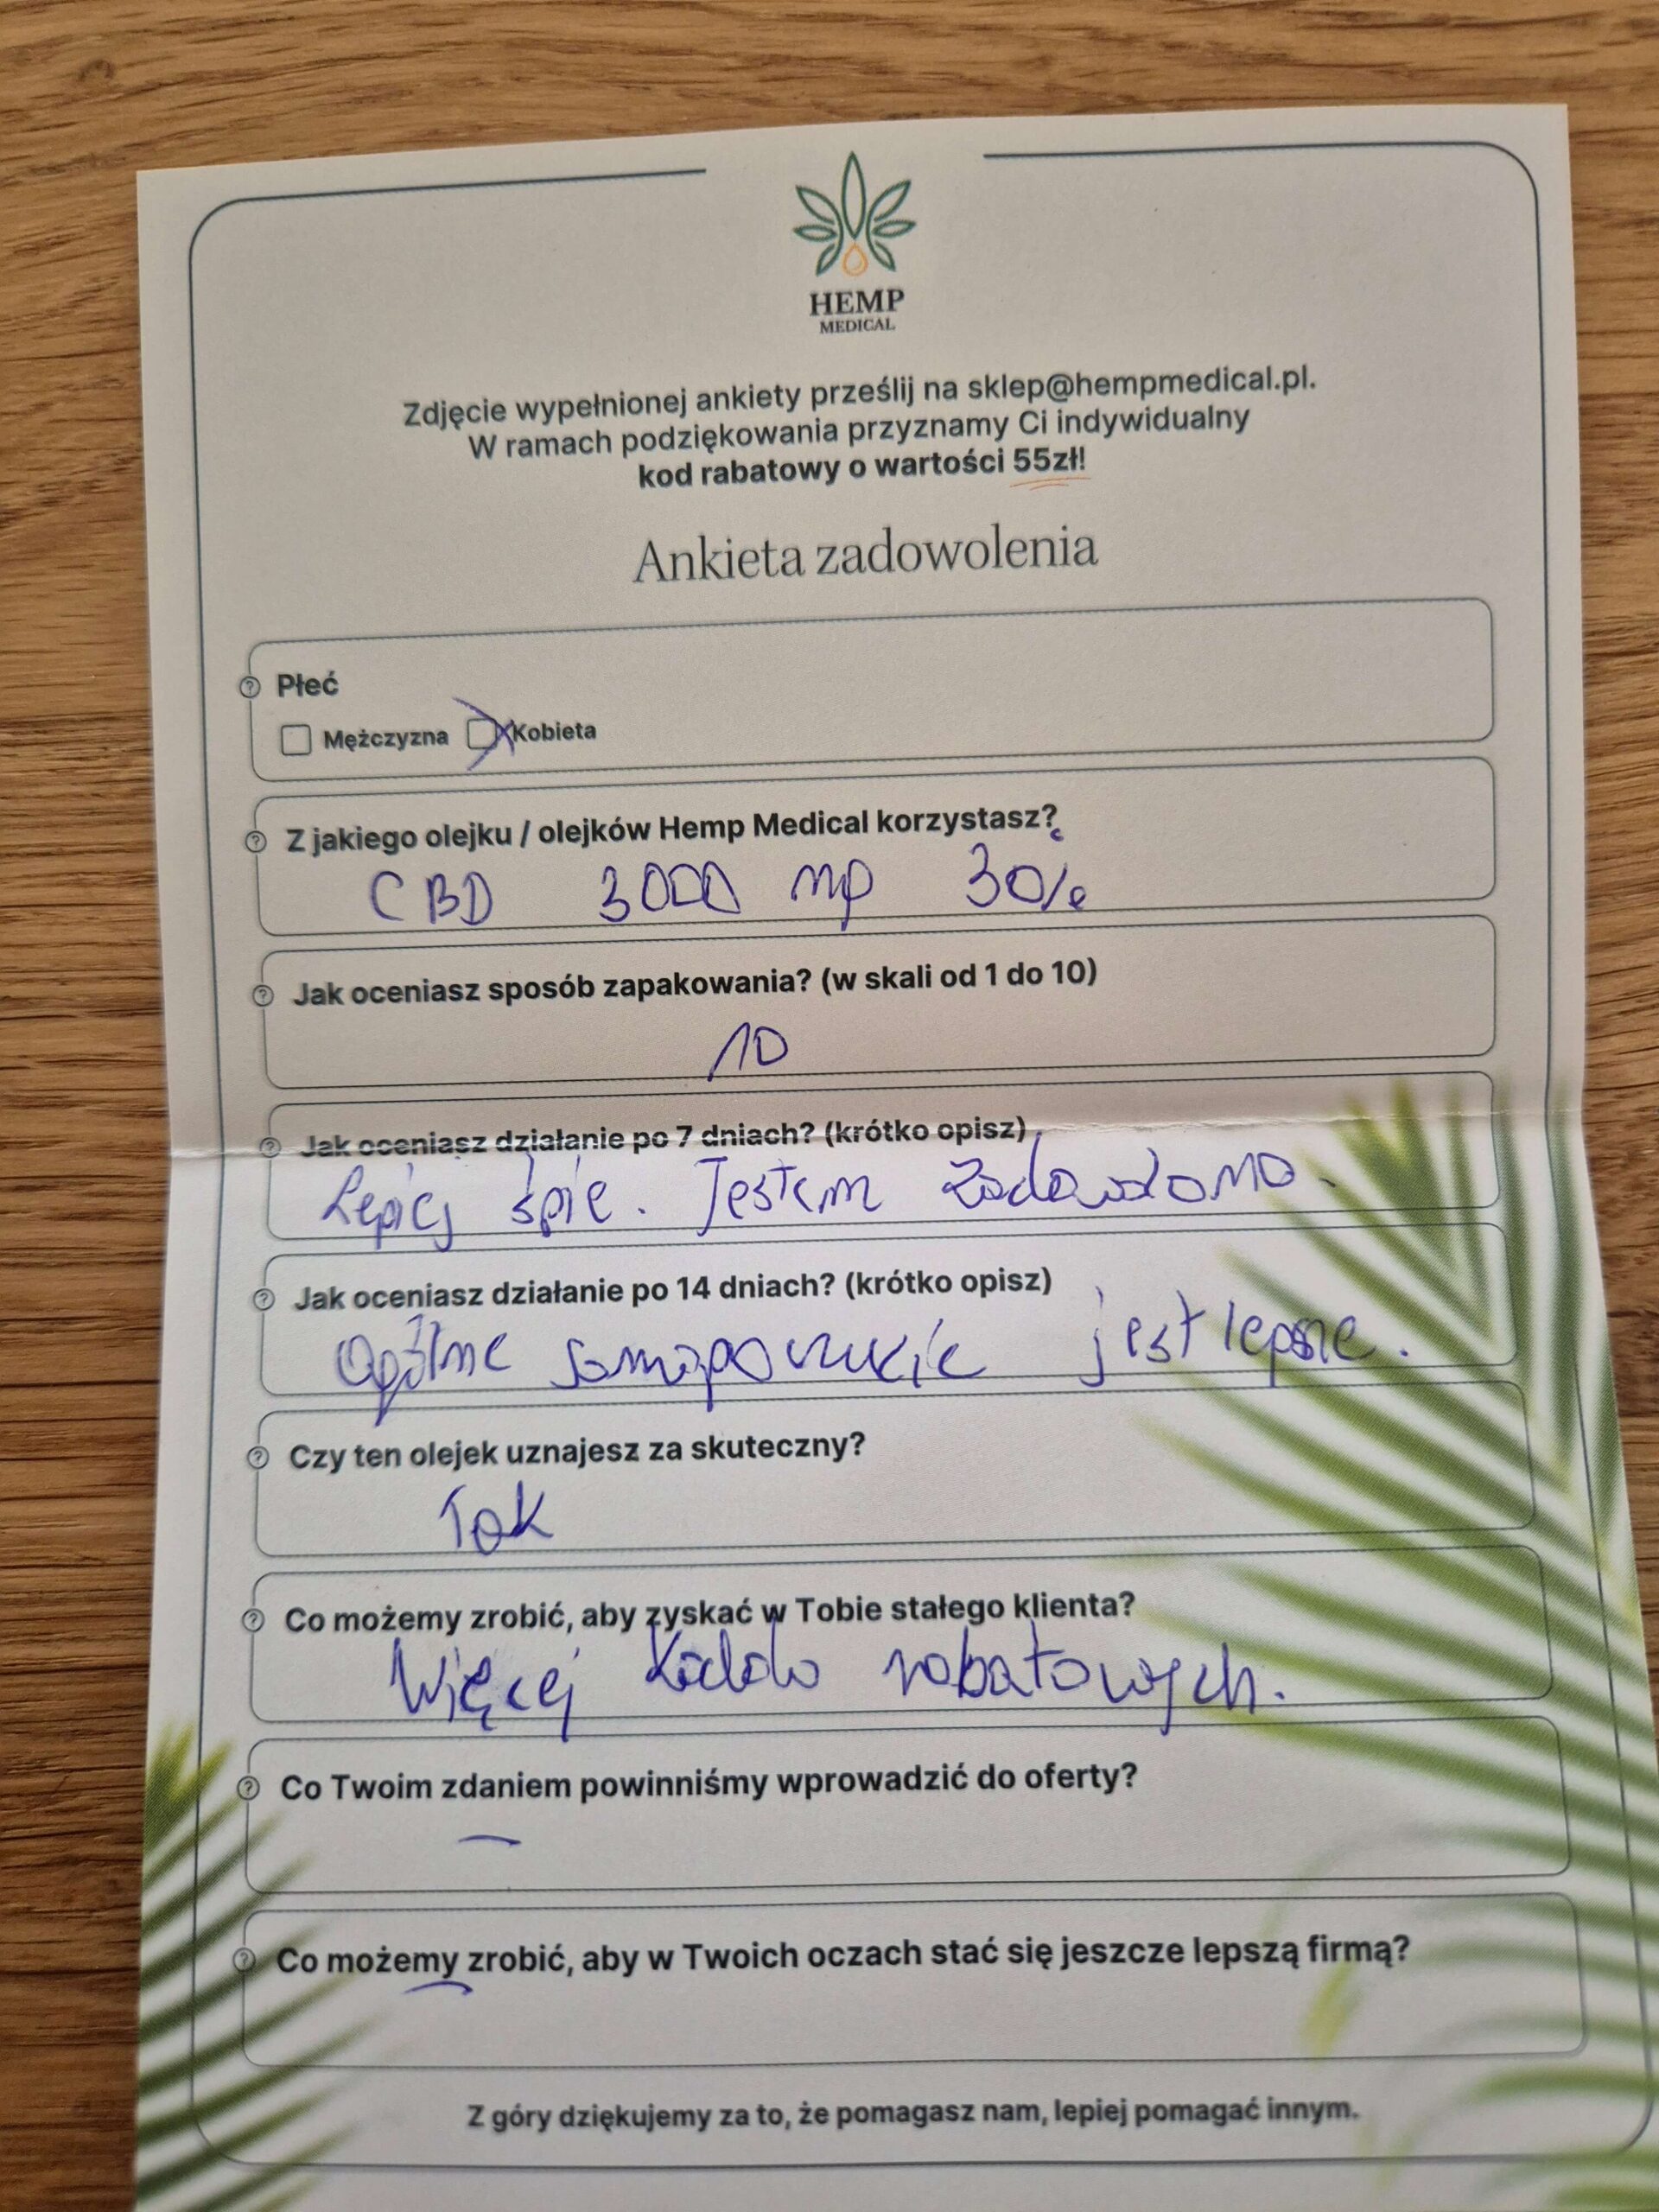 HEMP
MEDICAL
Zdjęcie wypełnionej ankiety prześlij na sklep@hempmedical.pl.
W ramach podziękowania przyznamy Ci indywidualny
kod rabatowy o wartości 55zł!
Ankieta zadowolenia
Płeć
Mężczyzna Kobieta
Z jakiego olejku / olejków Hemp Medical korzystasz?
CBD 3000 mg 30%
Jak oceniasz sposób zapakowania? (w skali od 1 do 10)
10
Jak oceniasz działanie po 7 dniach? (krótko opisz)
Lepiej śpie. Jestem zadowolona.
Jak oceniasz działanie po 14 dniach? (krótko opisz)
Ogólne samopoczucie jest lepsze.
Czy ten olejek uznajesz za skuteczny?
Tak
Co możemy zrobić, aby zyskać w Tobie stałego klienta?
Więcej kodów rabatowych.
Co Twoim zdaniem powinniśmy wprowadzić do oferty?
—
Co możemy zrobić, aby w Twoich oczach stać się jeszcze lepszą firmą?
Z góry dziękujemy za to, że pomagasz nam, lepiej pomagać innym.